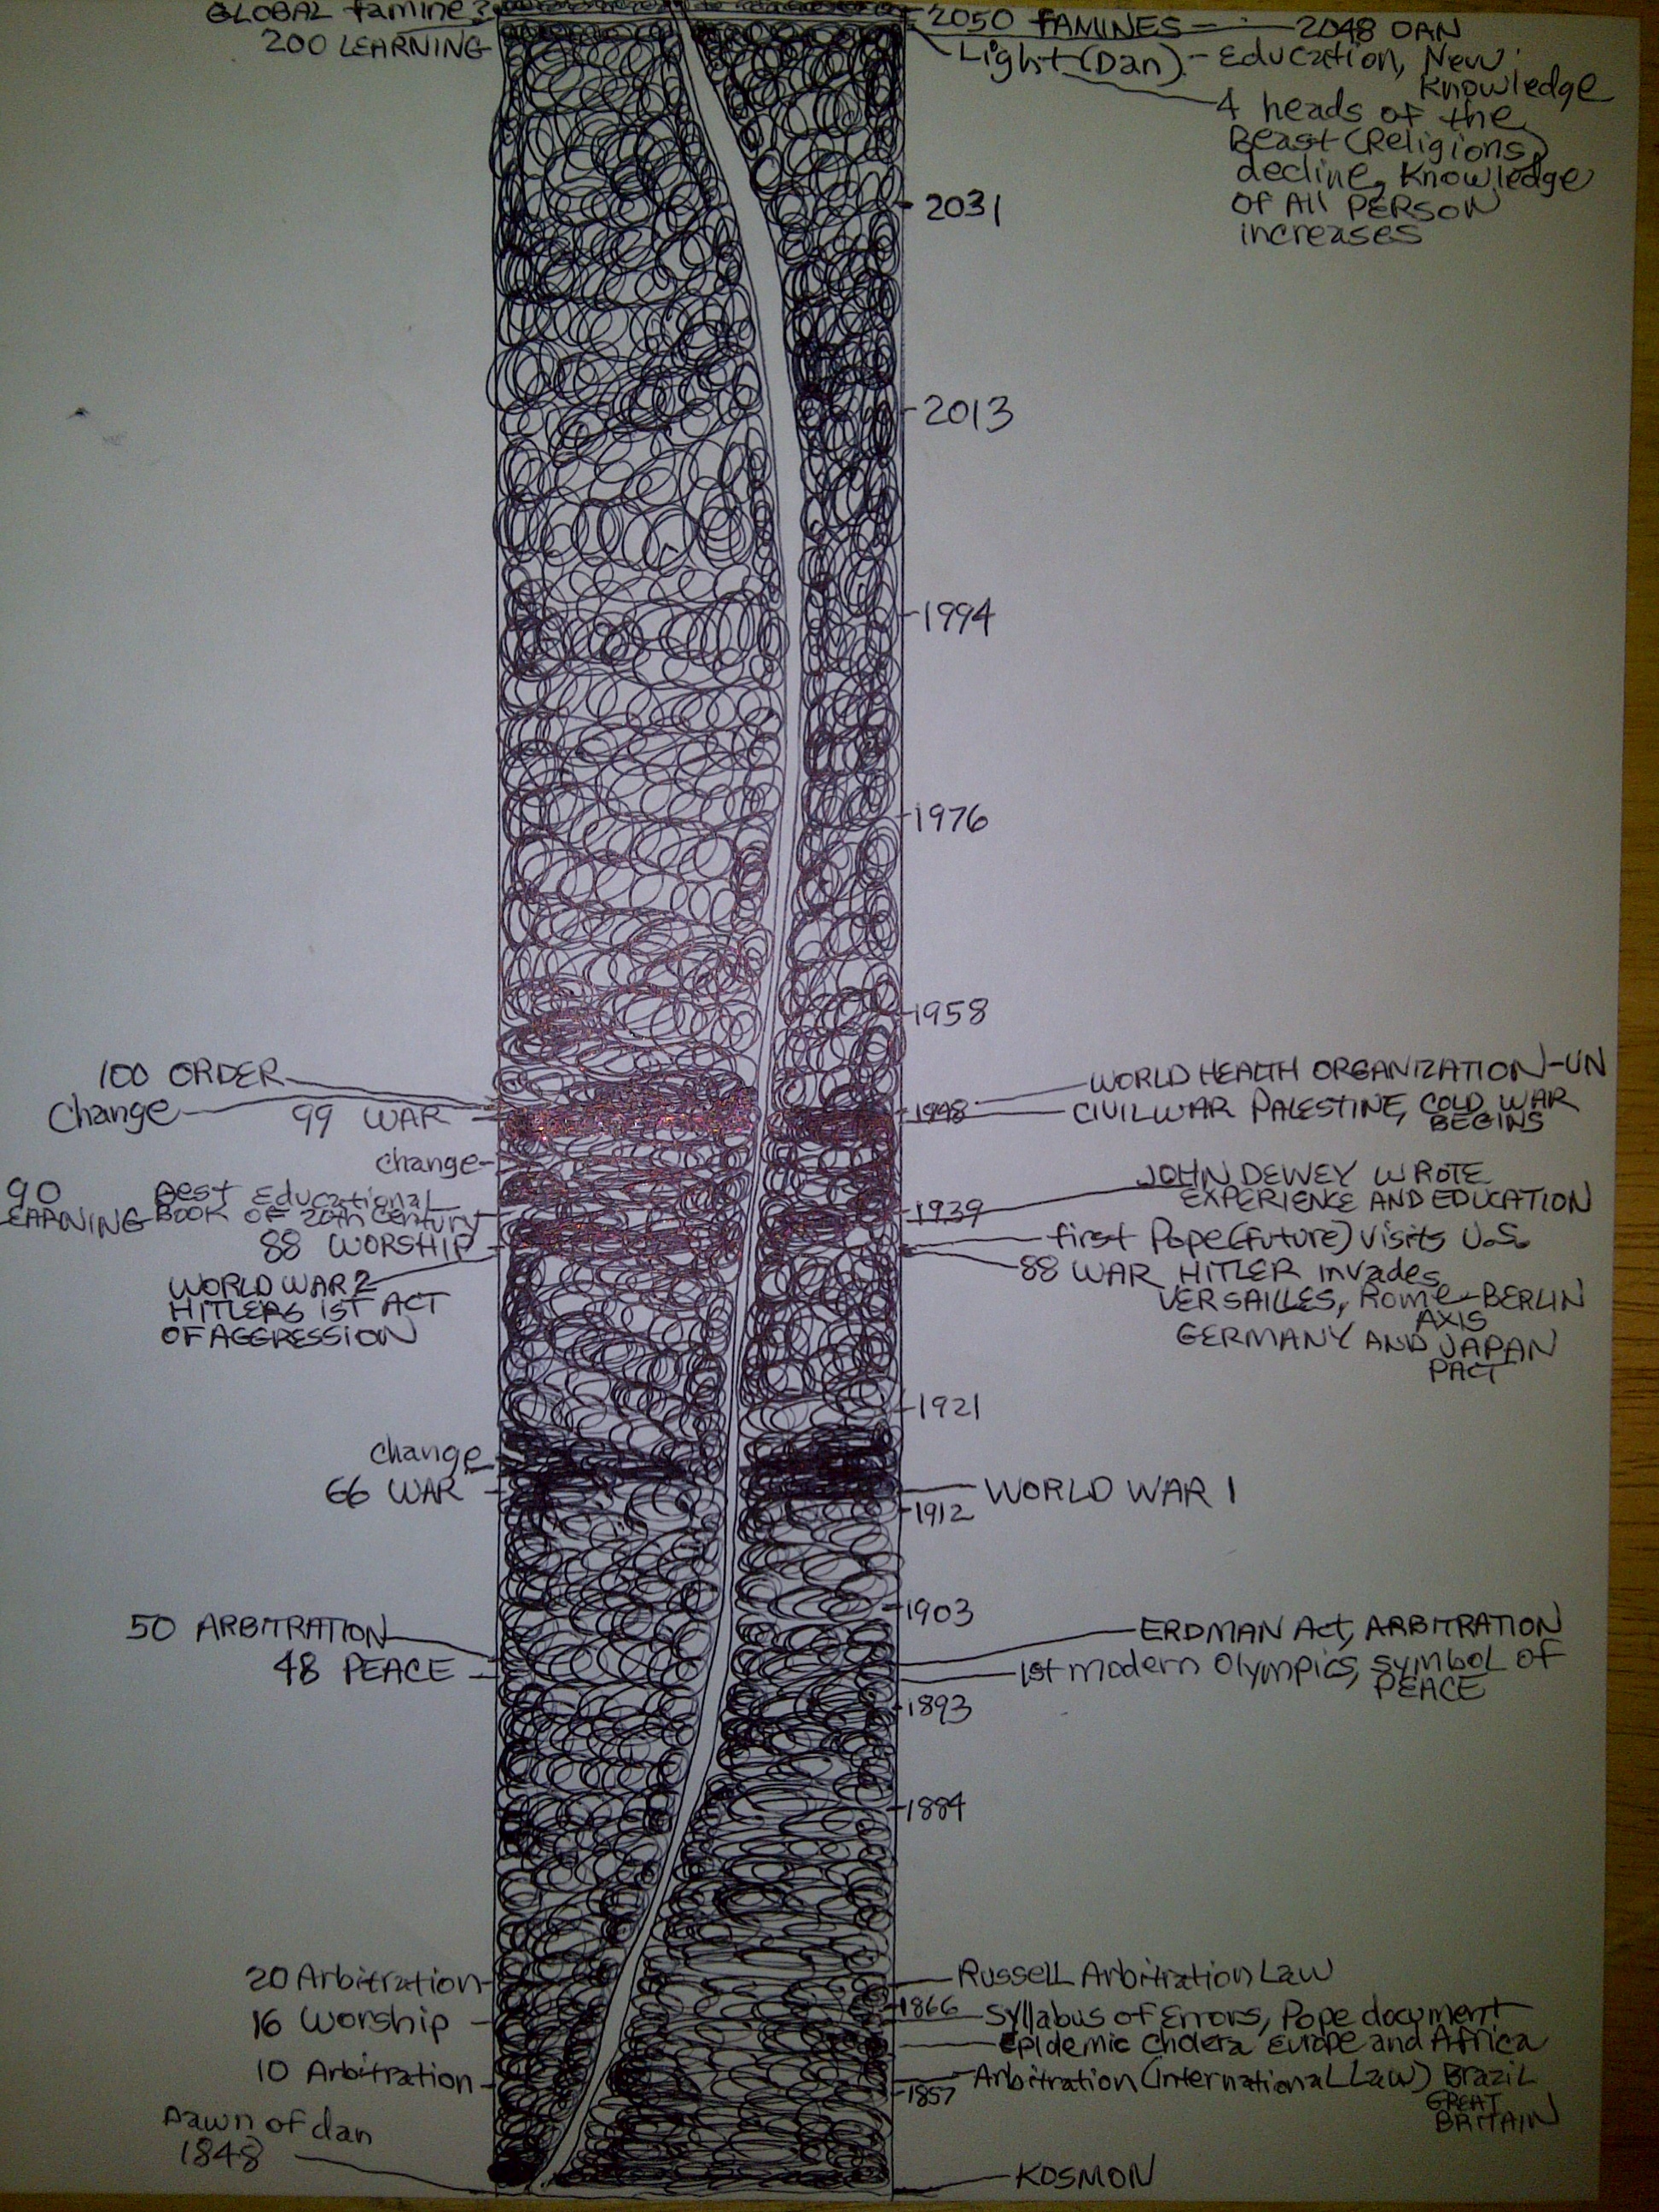 GLOBAL famine?
200 LEARNING
2050 FAMINES
2048 DAN
Light (Dan) - Education, New
Knowledge
4 heads of the
Beast (Religions)
decline, Knowledge
OF All PERSON
increases
2031
2013
1994
1976
1958
100 ORDER
Change
99 WAR
WORLD HEALTH ORGANIZATION-UN
1948
CIVIL WAR PALESTINE, COLD WAR
BEGINS
change
90
EARNING
Best Educational
BOOK OF 20th Century
JOHN DEWEY WROTE
EXPERIENCE AND EDUCATION
1939
88 WORSHIP
first Pope (Future) Visits U.S.
WORLD WAR 2
HITLERS 1ST ACT
OF AGGRESSION
88 WAR HITLER invades
VERSAILLES, Rome-BERLIN
AXIS
GERMANY AND JAPAN
PACT
1921
change
66 WAR
WORLD WAR 1
1912
1903
50 ARBITRATION
48 PEACE
ERDMAN Act, ARBITRATION
1st modern Olympics, symbol OF
PEACE
1893
1884
20 Arbitration
16 Worship
10 Arbitration
Russell Arbitration Law
1866
Syllabus of Errors, Pope document
Epidemic Cholera Europe and Africa
Arbitration (International Law) Brazil
GREAT
BRITAIN
1857
Dawn of dan
1848
KOSMON